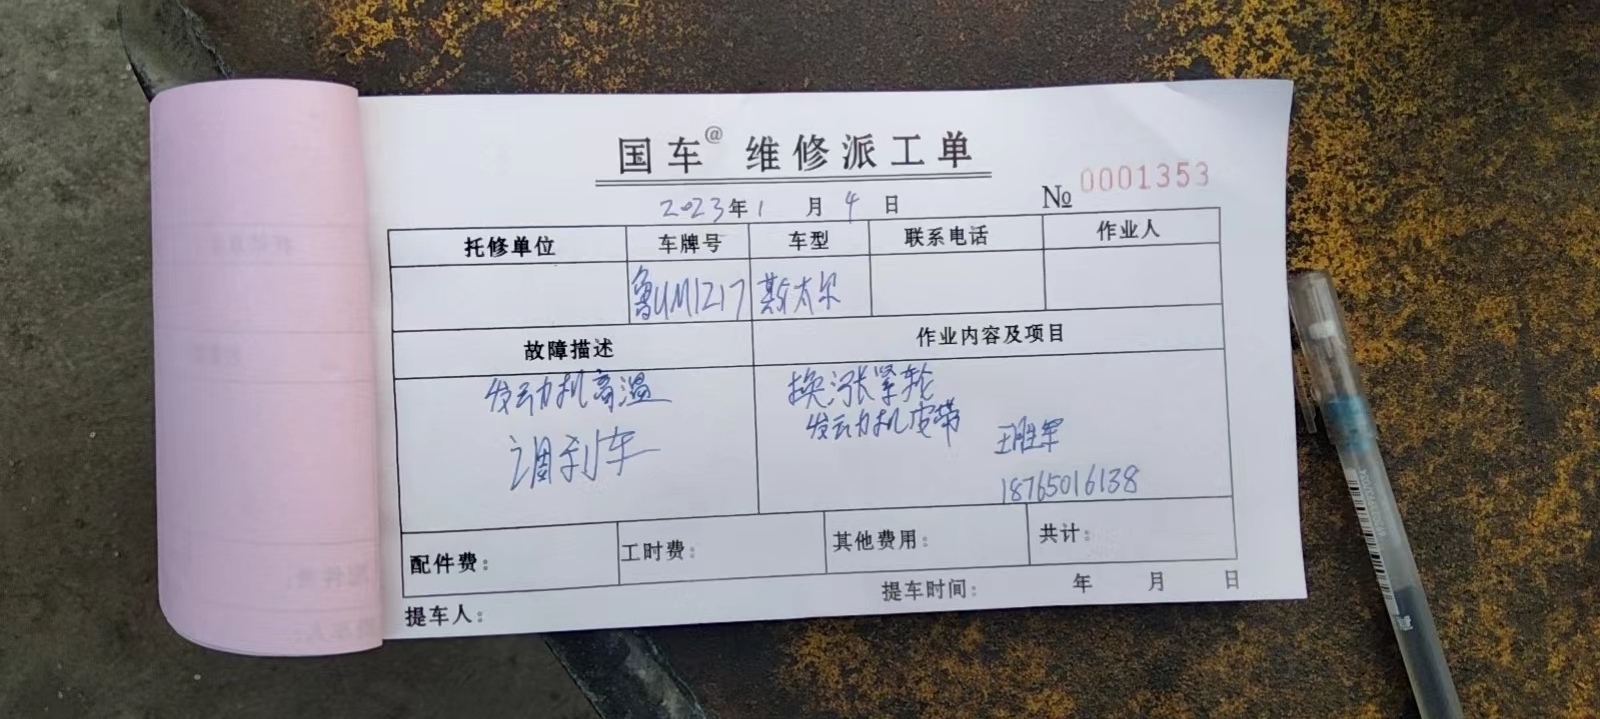 国车@ 维修派工单
2023年1月4日
№ 0001353
托修单位 车牌号 车型 联系电话 作业人
鲁UM1217 斯太尔
故障描述 作业内容及项目
发动机高温 换涨紧轮
调刹车 发动机皮带
王胜军
18765016138
配件费: 工时费: 其他费用: 共计:
提车人: 提车时间: 年 月 日